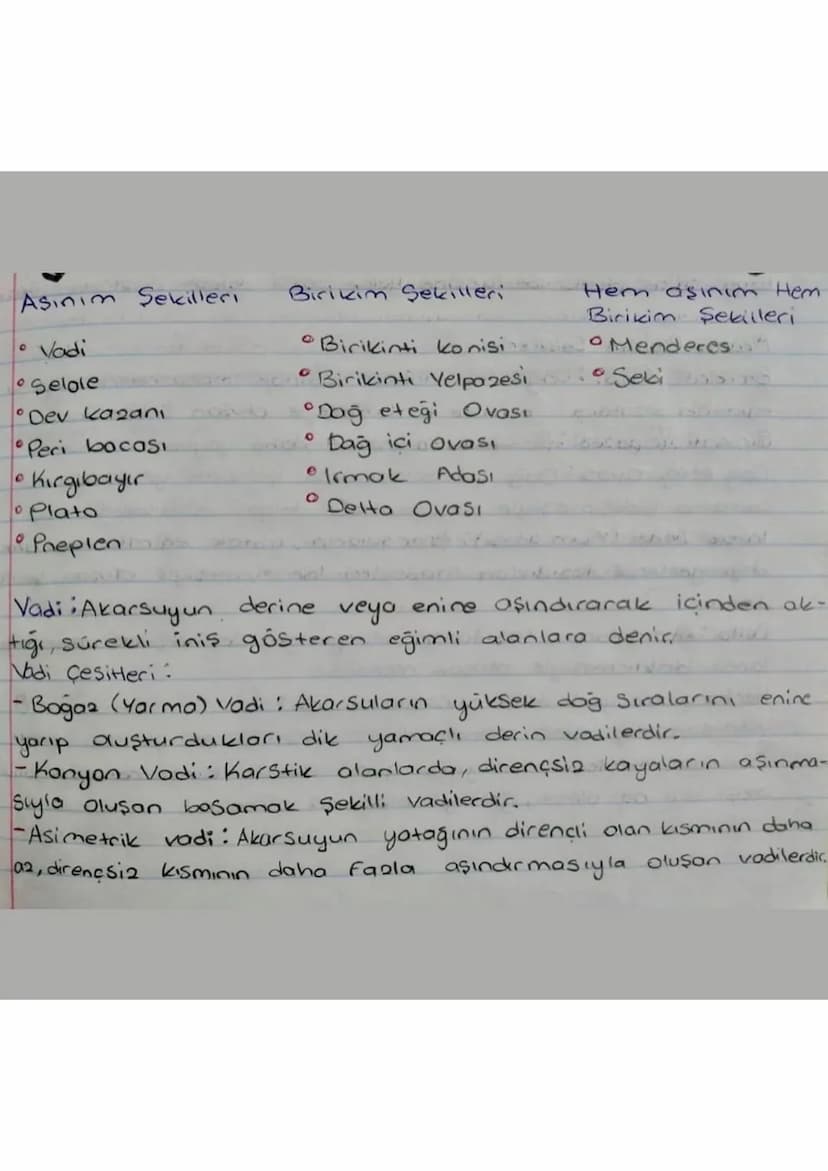 Aşınım Şekilleri
Vadi
Şelale
Dev kazanı
Peri bacası
Kırgıbayır
Plato
Peneplen
Birikim Şekilleri
Birikinti konisi
Birikinti Yelpazesi
Dağ eteği Ovası
Dağ içi ovası
Irmak Adası
Delta Ovası
Hem aşınım Hem
Birikim Şekilleri
Menderes
Seki
Vadi: Akarsuyun derine veya enine aşındırarak içinden ak-
tığı, sürekli iniş gösteren eğimli alanlara denir.
Vadi Çeşitleri:
- Boğaz (Yarma) Vadi: Akarsuların yüksek dağ sıralarını enine
yarıp oluşturdukları dik yamaçlı derin vadilerdir.
- Kanyon Vadi: Karstik alanlarda, dirençsiz kayaların aşınma-
sıyla oluşan basamak şekilli vadilerdir.
- Asimetrik vadi: Akarsuyun yatağının dirençli olan kısmının daha
az, dirençsiz kısmının daha fazla aşındırmasıyla oluşan vadilerdir.